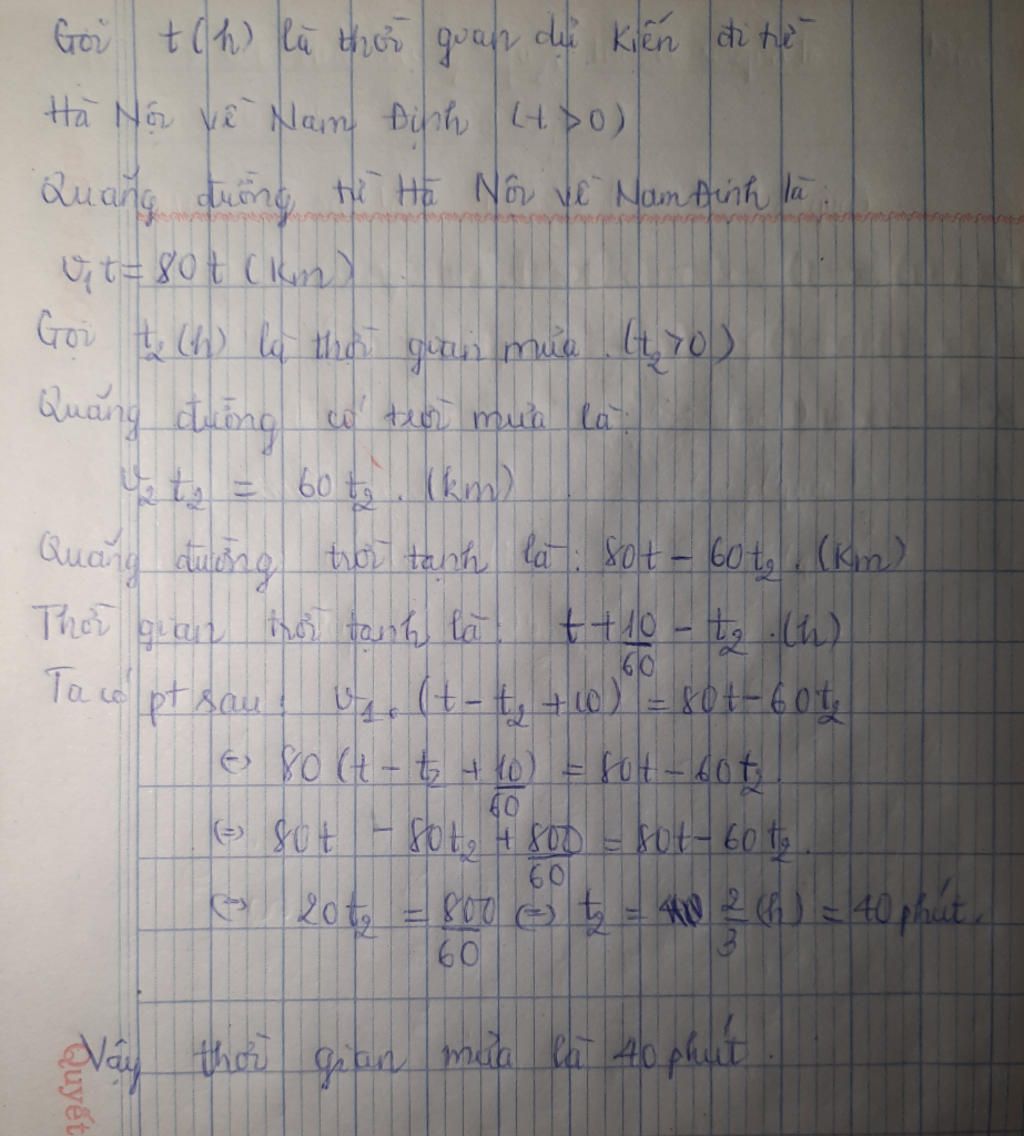 Gọi t(h) là thời quan dự kiến đi từ
Hà Nội về Nam Định (t > 0)
Quãng đường từ Hà Nội về Nam Định là:
v₁t = 80t (km)
Gọi t₂(h) là thời gian mưa. (t₂>0)
Quãng đường có trời mưa là:
v₂t₂ = 60t₂. (km)
Quãng đường trời tạnh là: 80t - 60t₂. (km)
Thời gian trời tạnh là: t + 10/60 - t₂. (h)
Ta có pt sau: v₁. (t - t₂ + 10) = 80t - 60t₂
⇔ 80(t - t₂ + 10/60) = 80t - 60t₂
⇔ 80t - 80t₂ + 800/60 = 80t - 60t₂.
⇔ 20t₂ = 800/60 ⇔ t₂ = 2/3 (h) = 40 phút.
Vậy thời gian mưa là 40 phút.
Quyết